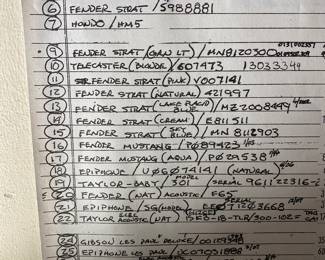 6 FENDER STRAT / S988881
7 HONDO / HM5
9 FENDER STRAT (GAN LT) / MN8120300
10 TELECASTER (BLONDE) / 607473 13033349
11 FENDER STRAT (PINK) V007141
12 FENDER STRAT (NATURAL) 421997
13 FENDER STRAT (LAKE PLACID BLUE) / MZ2008449
14 FENDER STRAT (CREAM) E811511
15 FENDER STRAT (SKY BLUE) / MN 8112903
16 FENDER MUSTANG / P089423
17 FENDER MUSTANG (AQUA) / P029538
18 EPIPHONE / U06074141 (NATURAL)
19 TAYLOR-BABY / MODEL 301 SERIAL 961122316
20 FENDER (NAT) ACOUSTIC / F65
21 EPIPHONE / SG (MODEL)
22 TAYLOR ACOUSTIC (NAT)
24 GIBSON LES PAUL DELUXE /
25 EPIPHONE LES PAUL